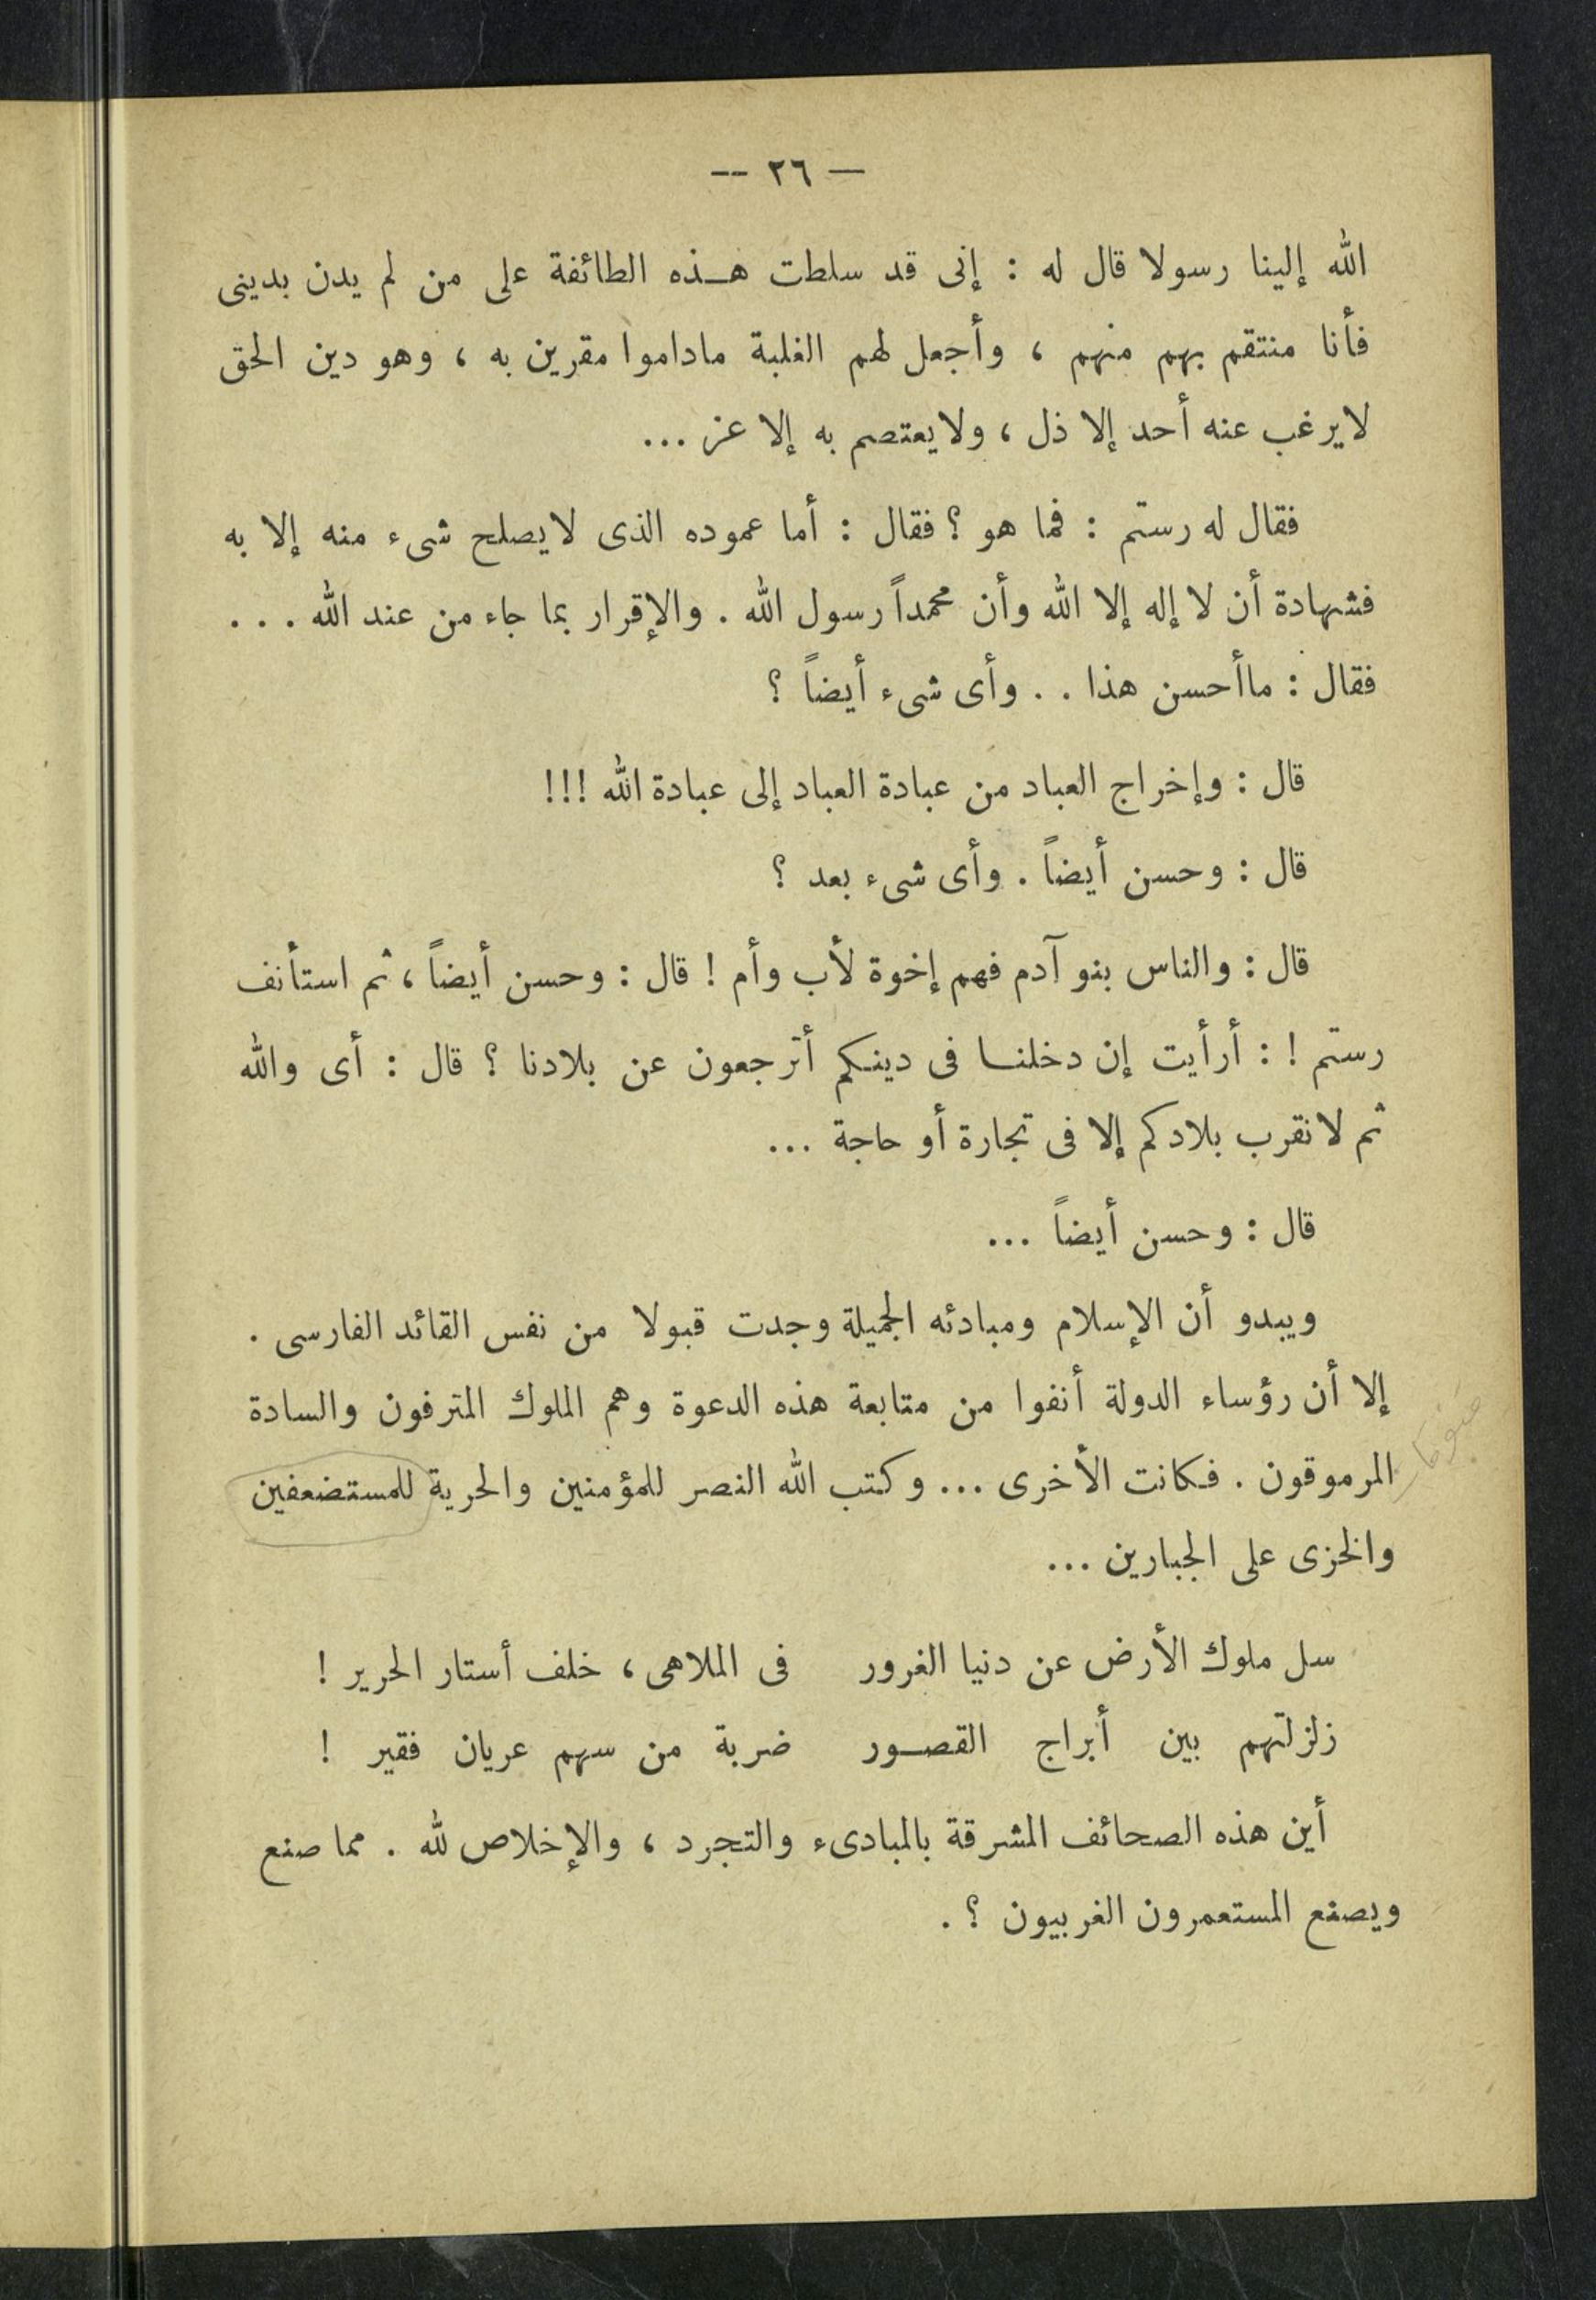 — ٢٦ --
الله إلينا رسولا قال له : إنى قد سلطت هـذه الطائفة على من لم يدن بدينى
فأنا منتقم بهم منهم ، وأجعل لهم الغلبة ماداموا مقرين به ، وهو دين الحق
لايرغب عنه أحد إلا ذل ، ولايعتصم به إلا عز ...
فقال له رستم : فما هو ؟ فقال : أما عموده الذى لايصلح شىء منه إلا به
فشهادة أن لا إله إلا الله وأن محمداً رسول الله . والإقرار بما جاء من عند الله . . .
فقال : ماأحسن هذا . . وأى شىء أيضاً ؟
قال : وإخراج العباد من عبادة العباد إلى عبادة الله !!!
قال : وحسن أيضاً . وأى شىء بعد ؟
قال : والناس بنو آدم فهم إخوة لأب وأم ! قال : وحسن أيضاً ، ثم استأنف
رستم ! : أرأيت إن دخلنـا فى دينـكم أترجعون عن بلادنا ؟ قال : أى والله
ثم لانقرب بلادكم إلا فى تجارة أو حاجة ...
قال : وحسن أيضاً ...
ويبدو أن الإسلام ومبادئه الجميلة وجدت قبولا من نفس القائد الفارسى .
إلا أن رؤساء الدولة أنفوا من متابعة هذه الدعوة وهم الملوك المترفون والسادة
المرموقون . فـكانت الأخرى ... وكتب الله النصر للمؤمنين والحرية للمستضعفين
والخزى على الجبارين ...
سل ملوك الأرض عن دنيا الغرور فى الملاهى ، خلف أستار الحرير !
زلزلتهم بين أبراج القصـور ضربة من سهم عريان فقير !
أين هذه الصحائف المشرقة بالمبادىء والتجرد ، والإخلاص لله . مما صنع
ويصنع المستعمرون الغربيون ؟ .